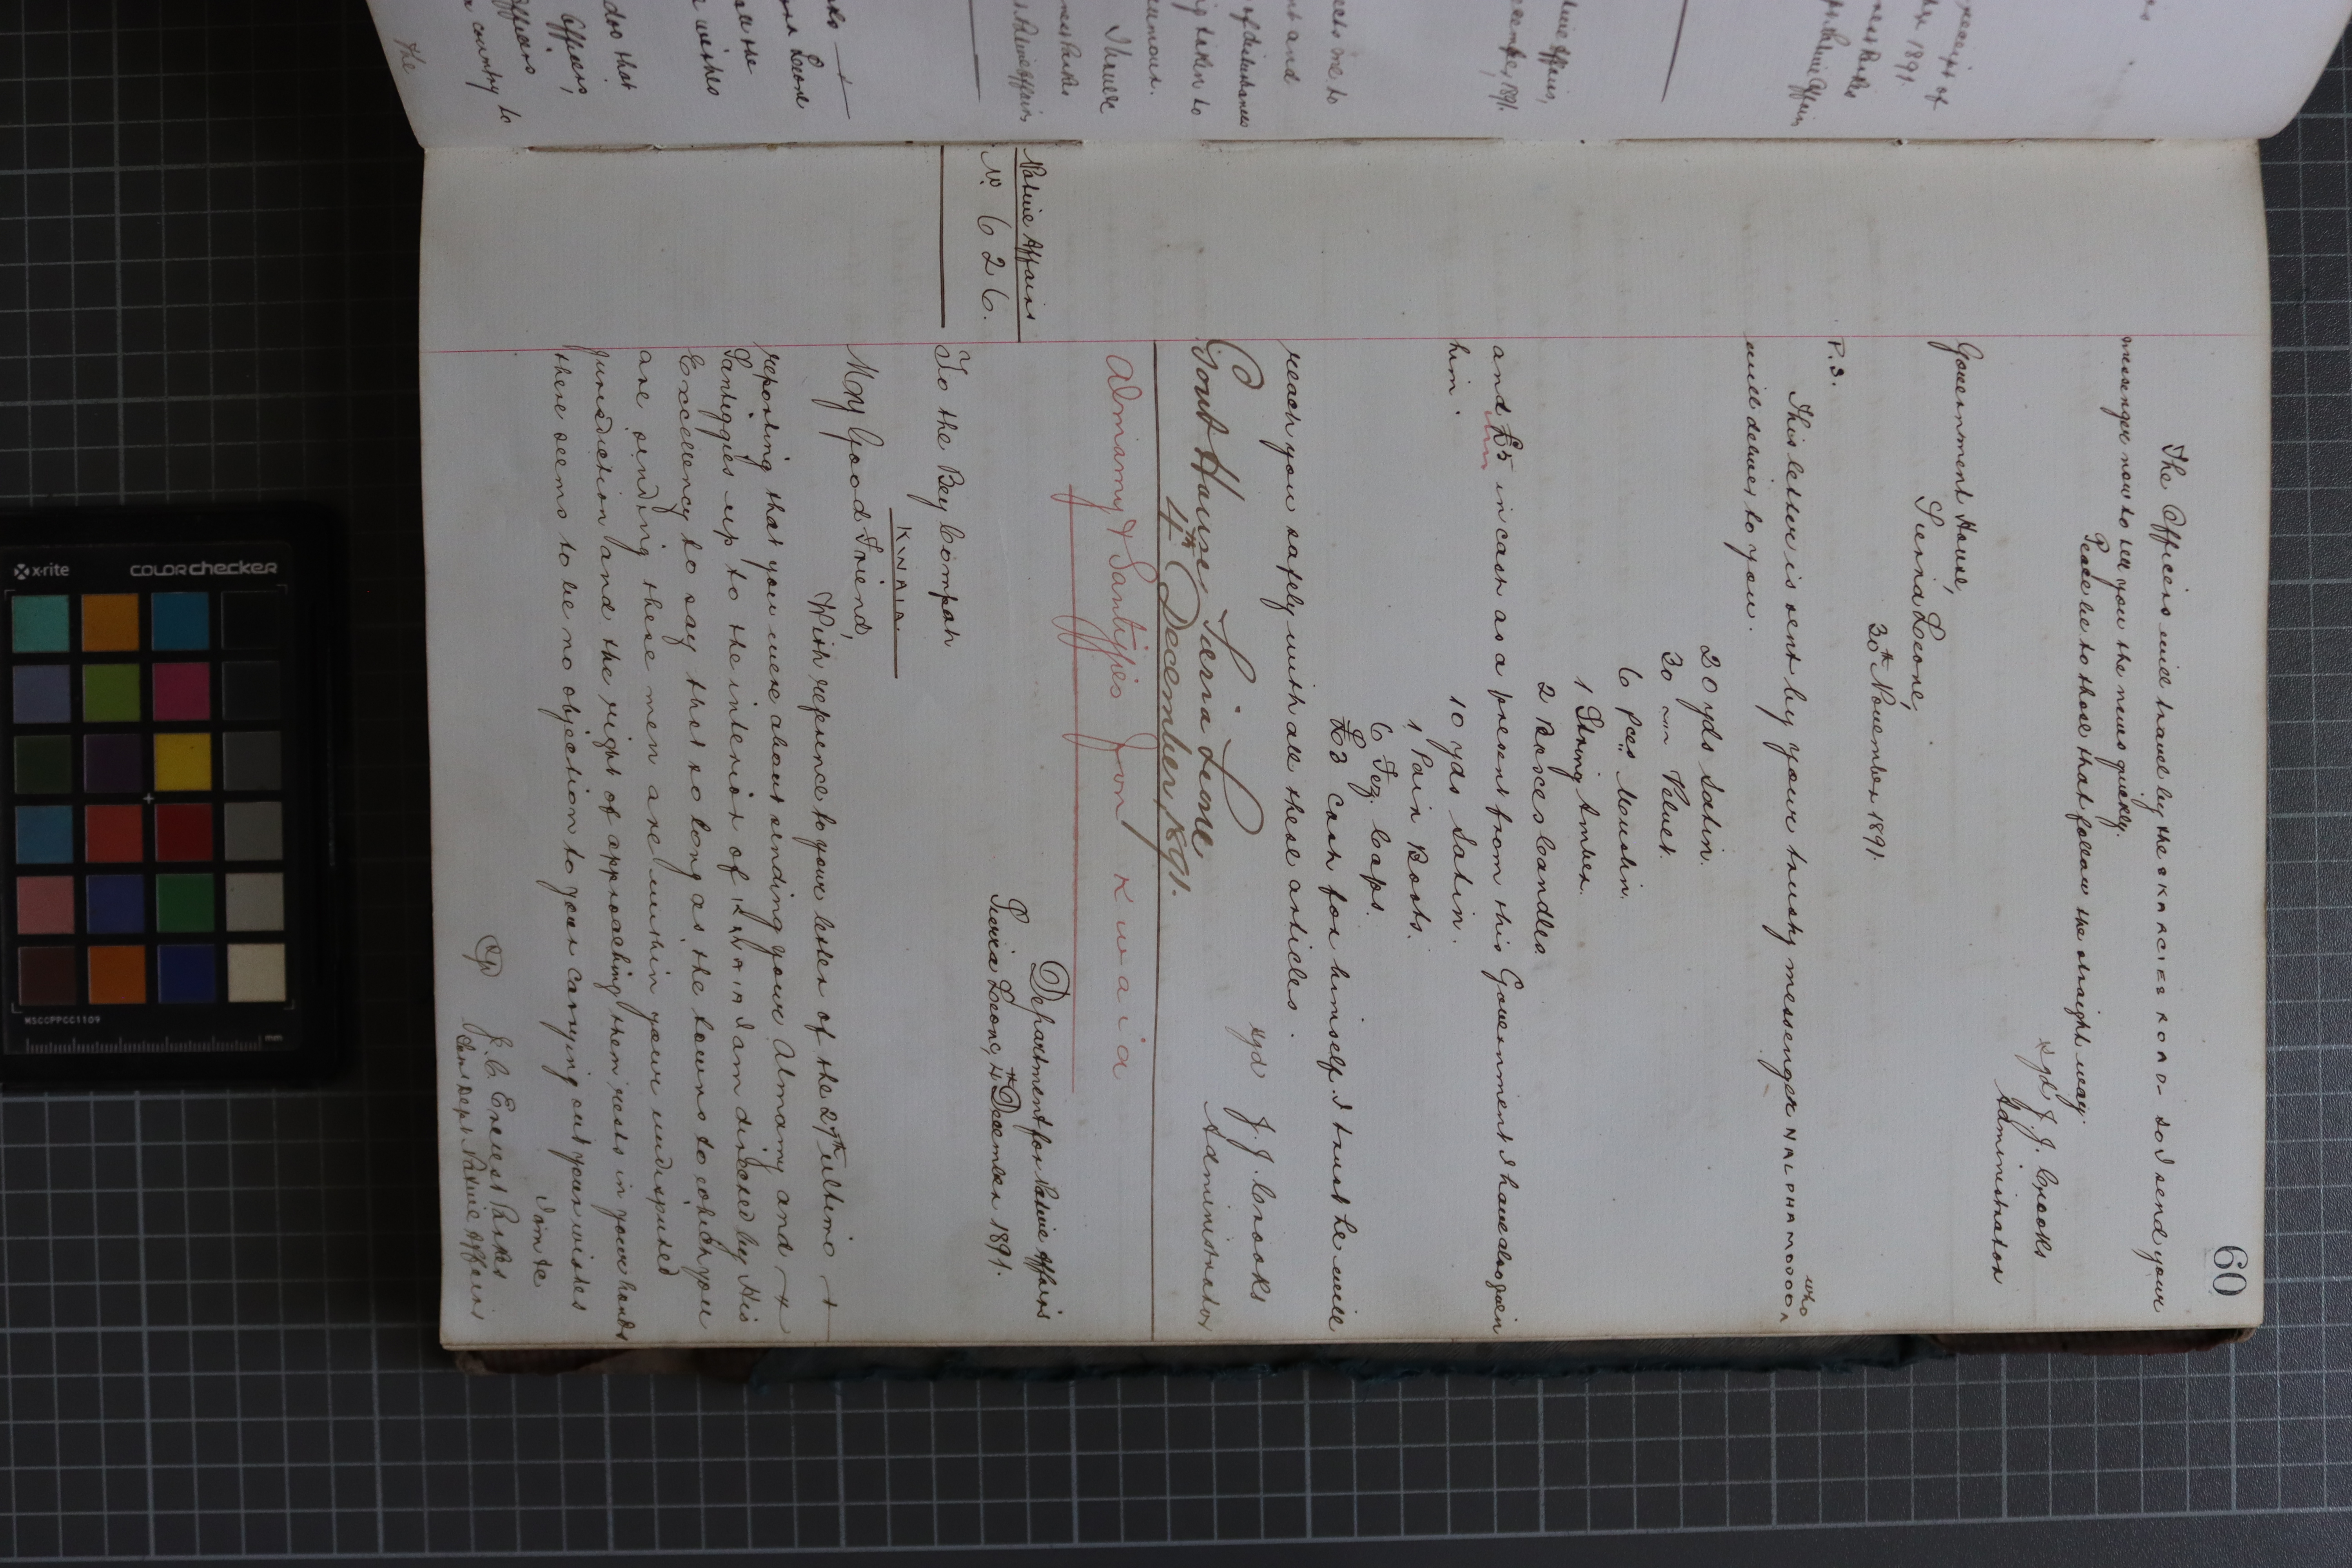 60
The Officers will travel by the SKARCIES ROAD so I send your
messenger now to tell you the news quickly.
Peace be to those that follow the straight way
sgd J. J. Crooks
Administrator
Government House,
Sierra Leone,
30th November 1891.
P.S.
This letter is sent by your trusty messenger NALOHAMODOO who
will deliver to you.
20 yds Satin.
30 " Velvet.
6 pces Muslin.
1 String Amber.
2 Boxes Candles
and £5 in cash as a present from this Government I have also given
him.
10 yds Satin.
1 Pair Boots.
6 Fez Caps.
£3 cash for himself. I trust he will
reach you safely with all these articles.
sgd J. J. Crooks
Administrator
Govt House, Sierra Leone
4th December, 1891.
Almamy & Santiggies from Kwaia
Native Affairs
No. 626.
Department for Native Affairs
Sierra Leone, 4th December 1891.
To the Bey Compah
KWAIA.
My Good Friend,
With reference to your letter of the 27th Ultimo
reporting that you were about sending your Almamy and
Santiggies up to the interior of KWAIA I am directed by His
Excellency to say that so long as the towns to which you
are sending these men are within your undisputed
jurisdiction and the right of approaching them rests in your hands
there seems to be no objection to your carrying out your wishes
I am &c
J. C. Ernest Parkes
Native Affairs
x-rite
colorchecker
MSCCPPCC1109
mm